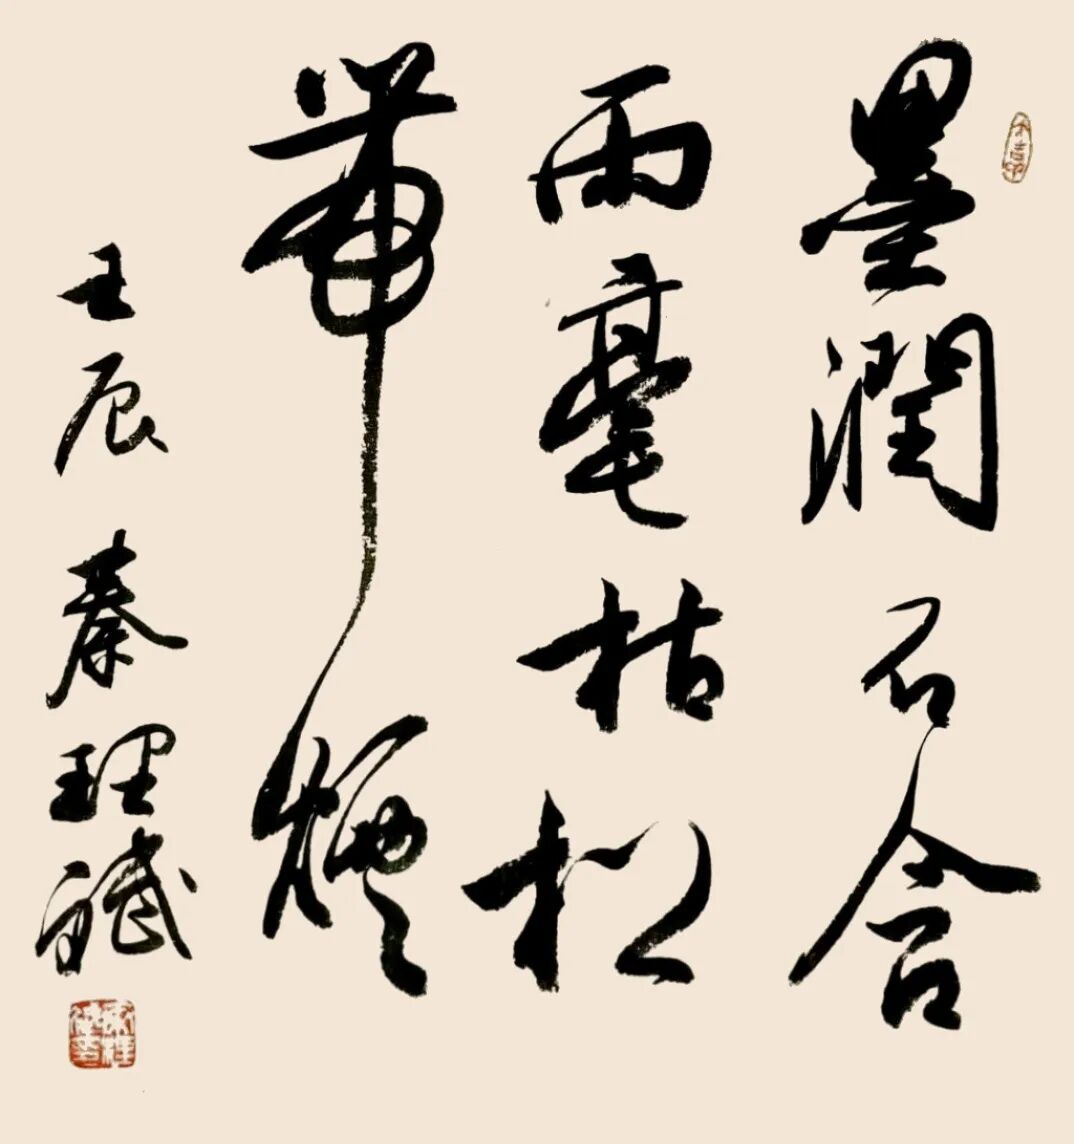 墨潤石含
雨毫枯松
帶煙
壬辰秦理斌